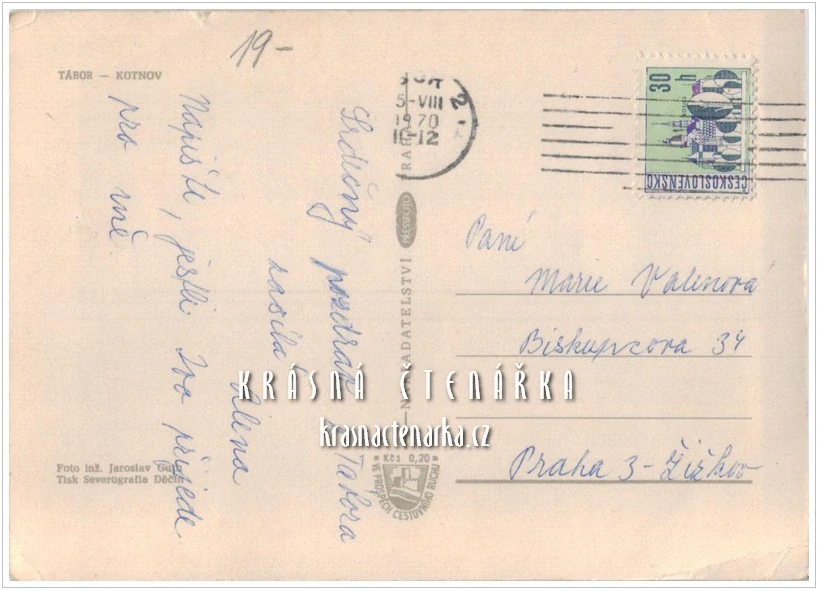 19-
TÁBOR — KOTNOV
Srdečný pozdrav z Tábora
zasílá Alena
Napište, jestli Ivo přijede
pro mě.
5-VIII
1970
11-12
30 h
ČESKOSLOVENSKO
Paní
Marie Valinová
Biskupcova 34
Praha 3-Žižkov
NAKLADATELSTVÍ PRESSFOTO PRAHA
KRÁSNÁ ČTENÁŘKA
krasnactenarka.cz
Kčs 0,20
VE PROSPĚCH CESTOVNÍHO RUCHU
Foto inž. Jaroslav Guth
Tisk Severografia Děčín